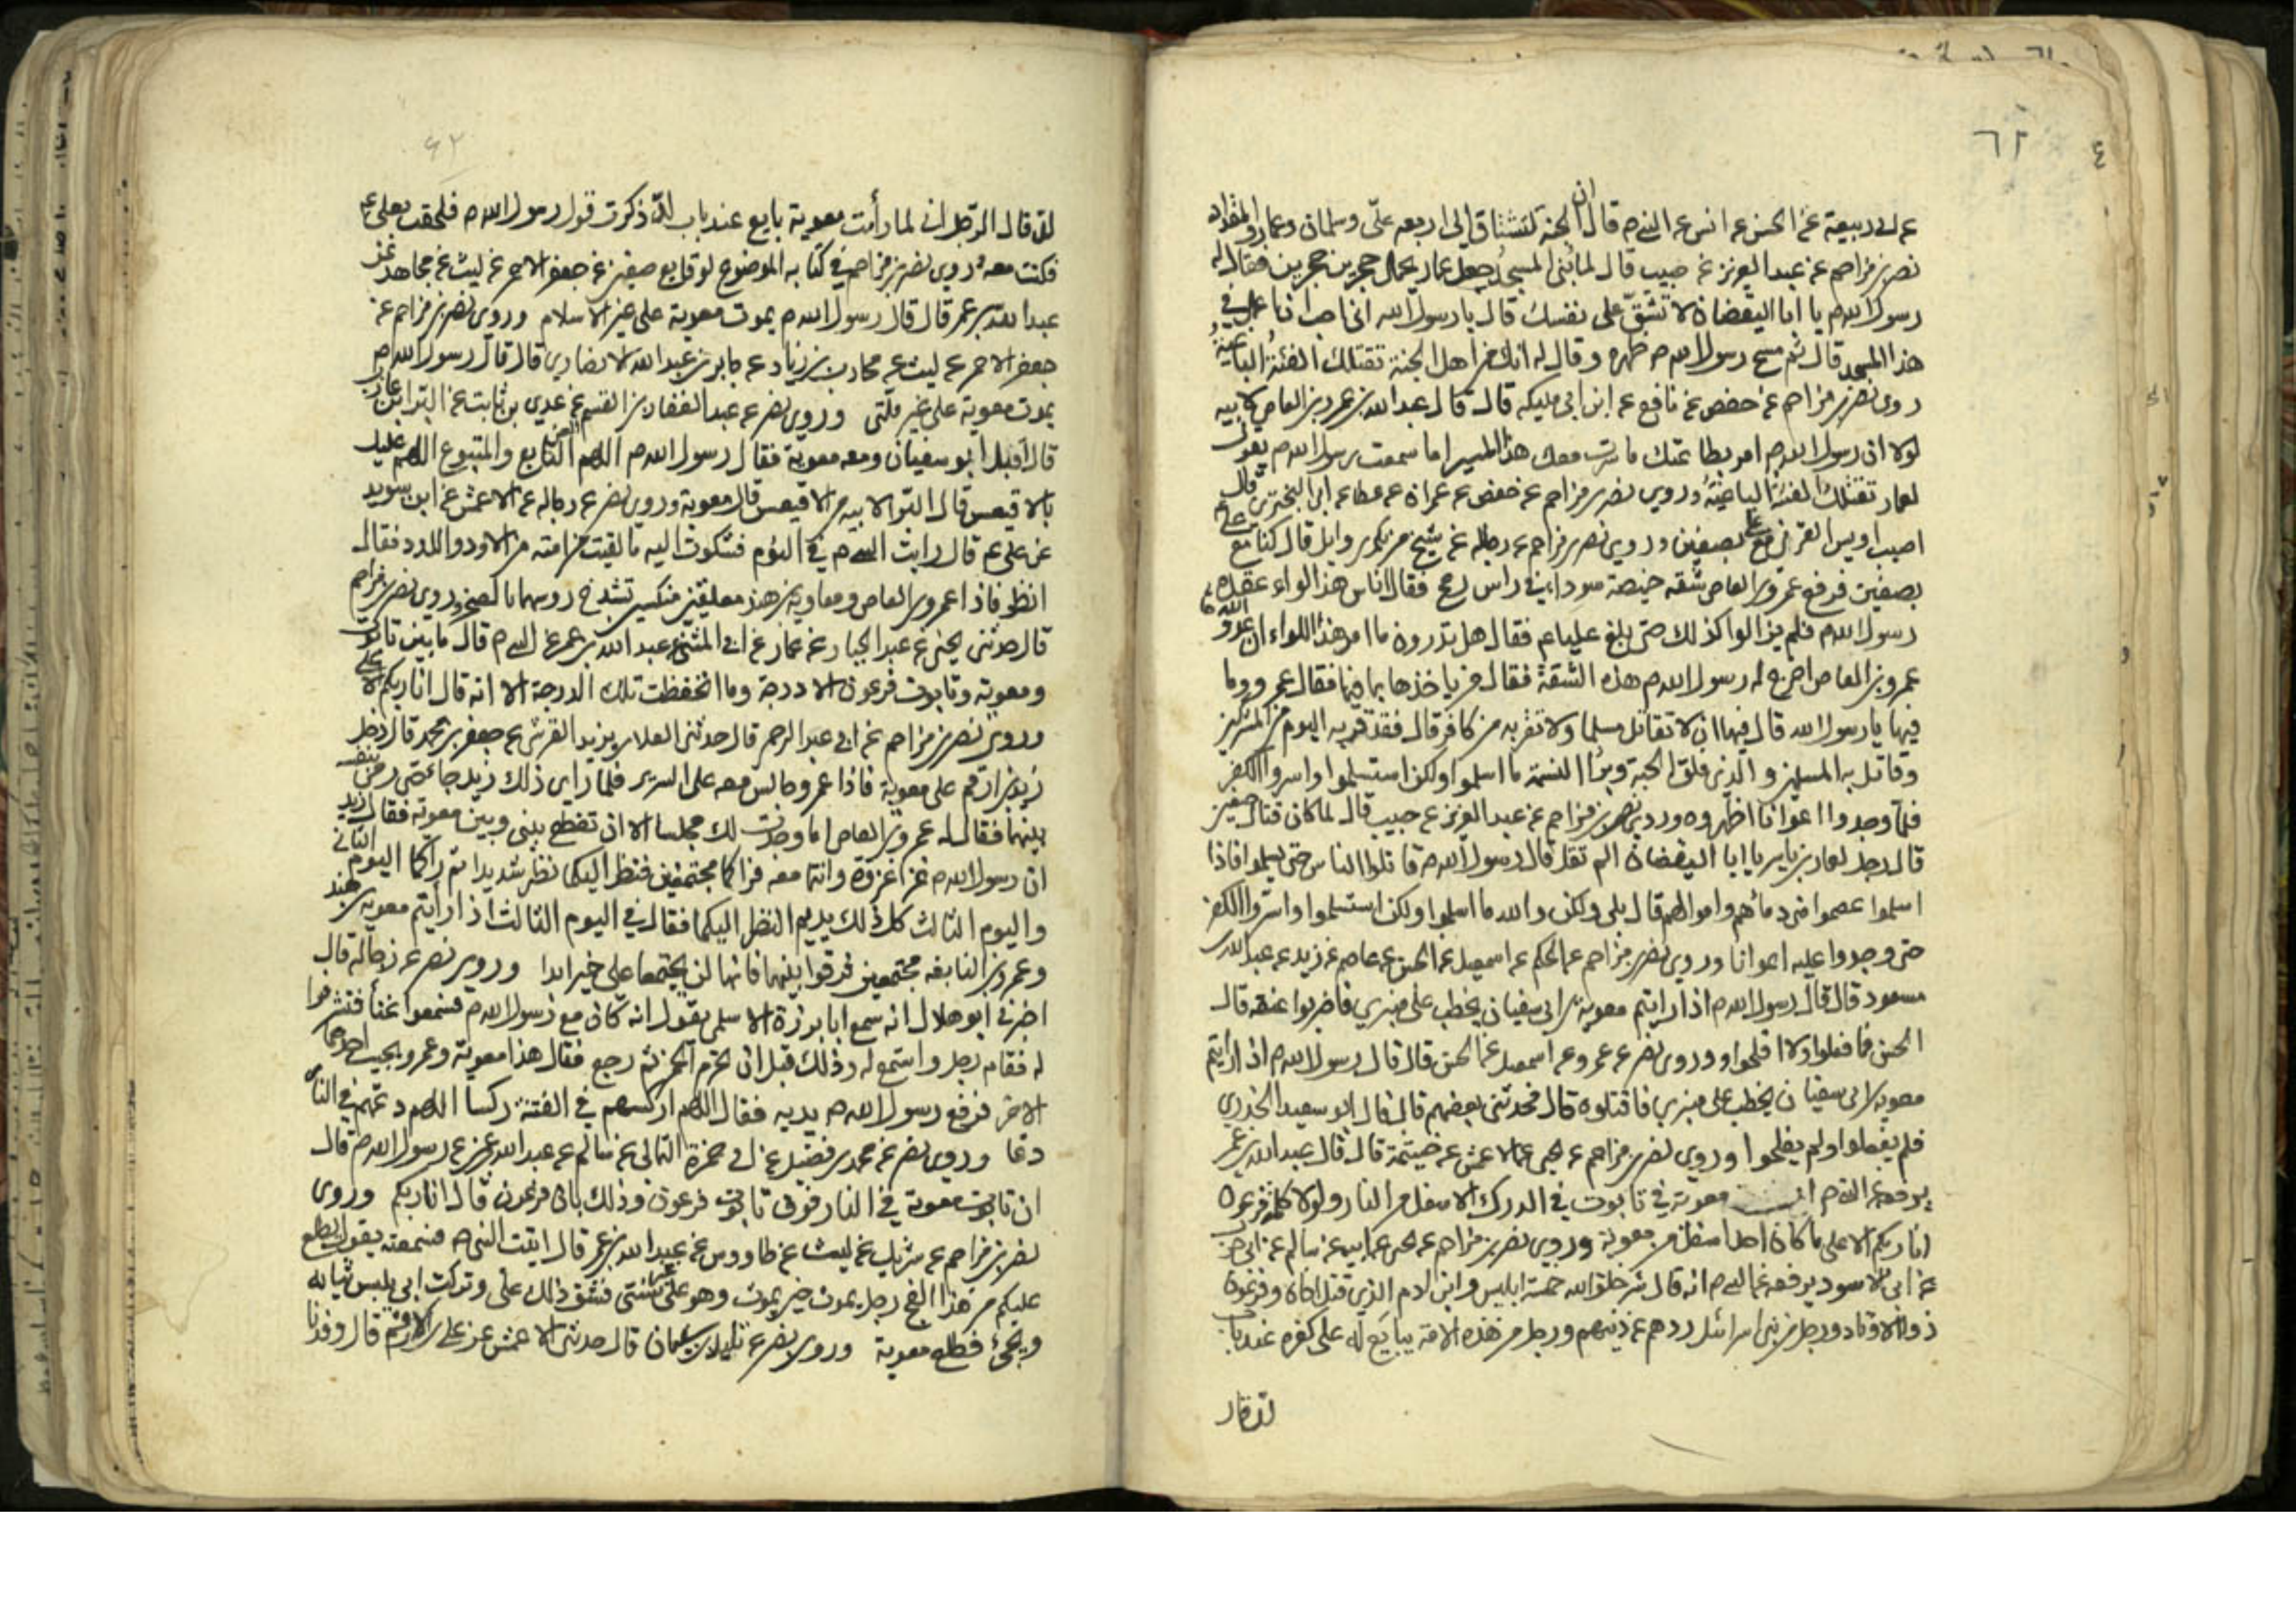 ٦٢
٤
عن ابي ربيعة عن الحسن عن انس عن النبي ص قال ان الجنة لتشتاق الى اربعه علي وسلمان وعمار والمقداد
نصر بن مزاحم عن عبد العزيز عن حبيب قال لما بني المسجد جعل عمار يحمل حجرين حجرين فقال له
رسول الله ص يا ابا اليقضان لا تشق على نفسك قال يا رسول الله اني احب ان اعمل في
هذا المسجد قال ثم مسح رسول الله ص ظهره وقال له انك من اهل الجنة تقتلك الفئة الباغية
روى نصر بن مزاحم عن حفص عن نافع عن ابن ابي مليكه قال قال عبد الله بن عمرو بن العاص لابيه
لولا ان رسول الله ص امر بطاعتك ما سرت معك هذا المسير اما سمعت رسول الله ص يقول
لعمار تقتلك الفئة الباغية وروي نصر بن مزاحم عن حفص عن عمران عن عطا عن ابي البختري قال
اصيب اويس القرني مع علي بصفين وروي نصر بن مزاحم عن رجاله عن شيخ من بكر بن وايل قال كنا مع علي ع
بصفين فرفع عمرو بن العاص شقه خميصة سوداء في راس رمح فقال الناس هذا لواء عقده
رسول الله ص فلم يزالوا كذلك حتى بلغ عليا ع فقال هل تدرون ما امر هذا اللواء ان عدو الله
عمرو بن العاص اخرج له رسول الله ص هذه الشقة فقال من ياخذها بما فيها فقال عمرو وما
فيها يا رسول الله قال فيها ان لا تقاتل مسلما ولا تقربه من كافر قال فقد قربه اليوم من المشركين
وقاتل به المسلمين والذي فلق الحبة وبرأ النسمة ما اسلموا ولكن استسلموا واسروا الكفر
فلما وجدوا اعوانا اظهروه وروى نصر بن مزاحم عن عبد العزيز عن حبيب قال لما كان قتال صفين
قال رجل لعمار بن ياسر يا ابا اليقضان الم تقل قال رسول الله ص قاتلوا الناس حتى يسلموا فاذا
اسلموا عصموا مني دمائهم واموالهم قال بلى ولكن والله ما اسلموا ولكن استسلموا واسروا الكفر
حتى وجدوا عليه اعوانا وروى نصر بن مزاحم عن الحكم عن اسمعيل عن الحسن عن عاصم عن زيد عن عبد الله بن
مسعود قال قال رسول الله ص اذا رايتم معوية بن ابي سفيان يخطب على منبري فاضربوا عنقه قال
الحسن فما فعلوا ولا افلحوا وروى نصر عن عمرو عن اسمعيل عن الحسن قال قال رسول الله ص اذا رايتم
معوية بن ابي سفيان يخطب على منبري فاقتلوه قال فحدثني بعضهم قال قال ابو سعيد الخدري
فلم يفعلوا ولم يفلحوا وروي نصر بن مزاحم عن يحيى عن الاعمش عن خيثمة قال قال عبد الله بن عمر
معوية في تابوت في الدرك الاسفل من النار ولولا كلمة فرعون
انا ربكم الاعلى ما كان احد اسفل من معوية وروي نصر بن مزاحم عن يحيى عن ابيه عن سالم عن ابي حرب
عن ابي الاسود يرفعه عن النبي ص انه قال شر خلق الله خمسة ابليس وابن ادم الذي قتل اخاه وفرعون
ذو الاوتاد ورجل من بني اسرائيل ردهم عن دينهم ورجل من هذه الامة يبايع له على كفره عند باب
لد قال
٤٢
لد قال الرجل اني لما رأيت معوية بايع عند باب لد ذكرت قول رسول الله ص فلحقت بعلي ع
فكنت معه وروي نصر بن مزاحم في كتابه الموضوع لوقايع صفين عن جعفر الاحمر عن ليث عن مجاهد عن
عبد الله بن عمر قال قال رسول الله ص يموت معوية على غير الاسلام وروي نصر بن مزاحم عن
جعفر الاحمر عن ليث عن محارب بن زياد عن جابر بن عبد الله الانصاري قال قال رسول الله ص
يموت معوية على غير ملتي وروي نصر عن عبد الغفار بن القسم عن عدي بن ثابت عن البرا بن عازب
قال اقبل ابو سفيان ومعه معوية فقال رسول الله ص اللهم العن التابع والمتبوع اللهم عليك
بالاقيعس قال البرا لابيه من الاقيعس قال معوية وروي نصر عن رجاله عن الاعمش عن ابن سويد
عن علي ع قال رايت النبي ص في النوم فشكوت اليه ما لقيت من امته من الاود واللدد فقال
انظر فاذا عمرو بن العاص ومعاوية بن هند معلقين منكسين تشدخ روسهما بالصخر وروي نصر بن مزاحم
قال حدثني يحيى عن عبد الجبار عن عمار عن ابي المثنى عن عبد الله بن عمر عن النبي ص قال ما بين تابوت
ومعوية وتابوت فرعون الا درجة وما انخفظت تلك الدرجة الا انه قال انا ربكم الاعلى
وروى نصر بن مزاحم عن ابي عبد الرحمن قال حدثني العلا بن يزيد القرشي عن جعفر بن محمد قال دخل
زيد بن ارقم على معوية فاذا عمرو جالس معه على السرير فلما راى ذلك زيد جاء حتى رمى بنفسه
بينهما فقال له عمرو بن العاص اما وجدت لك مجلسا الا ان تقطع بيني وبين معوية فقال زيد
ان رسول الله ص غزا غزوة وانتما معه فراكما مجتمعين فنظر اليكما نظر شديدا ثم راكما اليوم الثاني
واليوم الثالث كل ذلك يديم النظر اليكما فقال في اليوم الثالث اذا رايتم معوية بن هند
وعمرو بن النابغه مجتمعين فرقوا بينهما فانهما لن يجتمعا على خير ابدا وروى نصر عن رجاله قال
اخبرني ابو هلال انه سمع ابا برزة الاسلمي يقول انه كان مع رسول الله ص فسمعوا غنأ فتشرفوا
له فقام رجل واستمع له وذلك قبل ان تحرم الخمر ثم رجع فقال هذا معوية وعمرو يجيب احدهما
الاخر فرفع رسول الله ص يديه فقال اللهم اركسهم في الفتنة ركسا اللهم دعهم في النار
دعا وروى نصر عن محمد بن فضيل عن ابي حمزة الثمالي عن سالم عن عبد الله بن عمر عن رسول الله ص قال
ان تابوت معوية في النار فوق تابوت فرعون وذلك بان فرعون قال انا ربكم وروى
نصر بن مزاحم عن شريك عن ليث عن طاووس عن عبد الله بن عمر قال اتيت النبي ص فسمعته يقول يطلع
عليكم من هذا الفج رجل يموت حين يموت وهو على غير سنتي فشق ذلك علي وتركت ابي يلبس ثيابه
ويجئ فطلع معوية وروى نصر عن تليد بن سليمان قال حدثني الاعمش عن علي بن الاقمر قال وفدنا